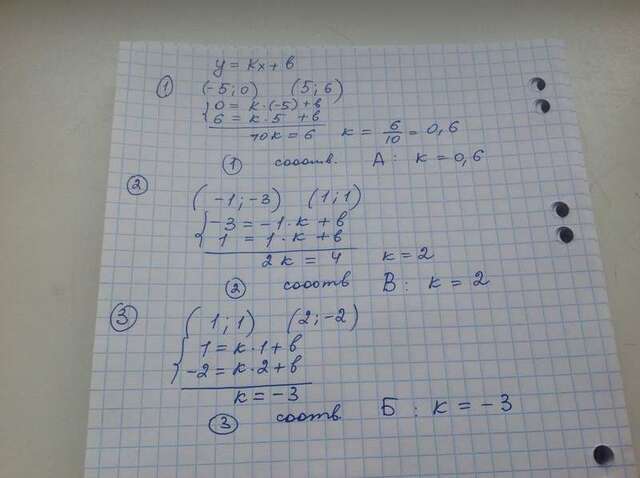 y = kx + b
① (-5; 0) (5; 6)
{ 0 = k·(-5) + b
6 = k·5 + b
10k = 6 k = 6/10 = 0,6
① сооотв. А: k = 0,6
② (-1; -3) (1; 1)
{ -3 = -1·k + b
1 = 1·k + b
2k = 4 k = 2
② сооотв В: k = 2
③ (1; 1) (2; -2)
{ 1 = k·1 + b
-2 = k·2 + b
k = -3
③ соотв Б: k = -3